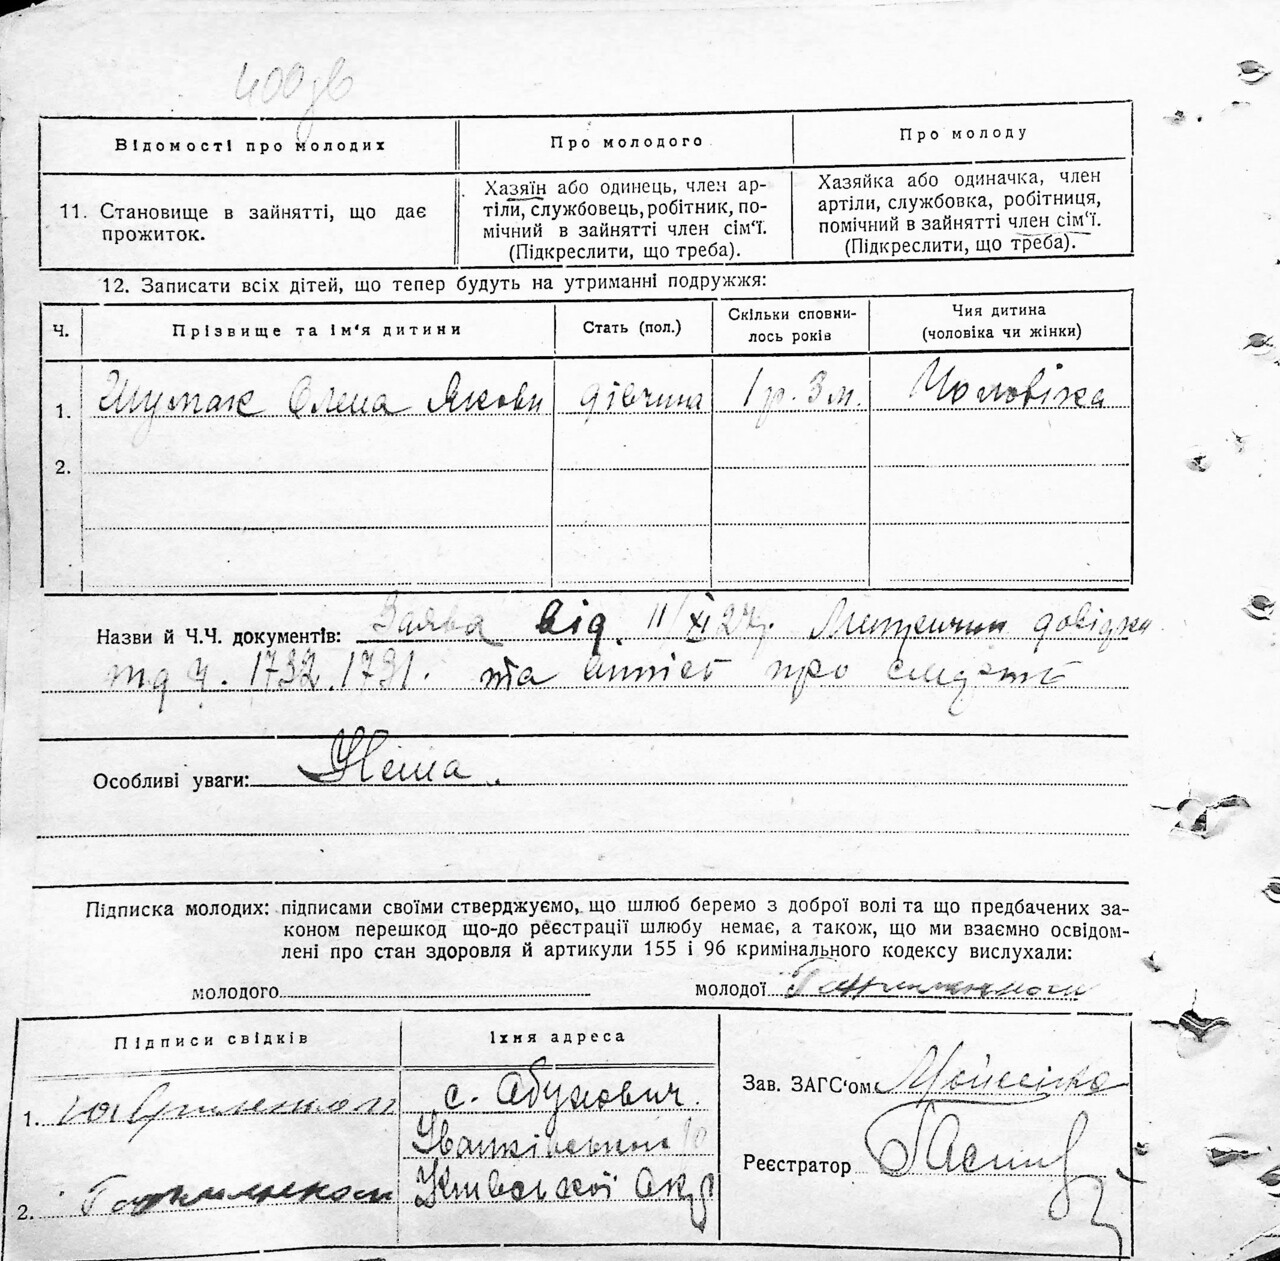 Відомості про молодих
Про молодого
Про молоду
11. Становище в зайнятті, що дає
прожиток.
Хазяїн або одинець, член ар-
тілі, службовець, робітник, по-
мічний в зайнятті член сім'ї.
(Підкреслити, що треба).
Хазяйка або одиначка, член
артіли, службовка, робітниця,
помічний в зайнятті член сім'ї.
(Підкреслити, що треба).
12. Записати всіх дітей, що тепер будуть на утриманні подружжя:
Ч.
Прізвище та ім'я дитини
Стать (пол.)
Скільки сповни-
лось років
Чия дитина
(чоловіка чи жінки)
1. Шумак Олена Якови дівчина 1 р. 3 м. Чоловіка
2.
Назви й Ч.Ч. документів: Заява від 11/XI 27р. Метрични довідки
Ч. 1732. 1731. та про
Особливі уваги: Нема.
Підписка молодих: підписами своїми стверджуємо, що шлюб беремо з доброї волі та що предбачених за-
коном перешкод що-до реєстрації шлюбу немає, а також, що ми взаємно освідом-
лені про стан здоровля й артикули 155 і 96 кримінального кодексу вислухали:
молодого
молодої
Підписи свідків
Їхня адреса
1.
с. Обухович
Іванківський
2.
Київської Окр
Зав. ЗАГС'ом
Реєстратор